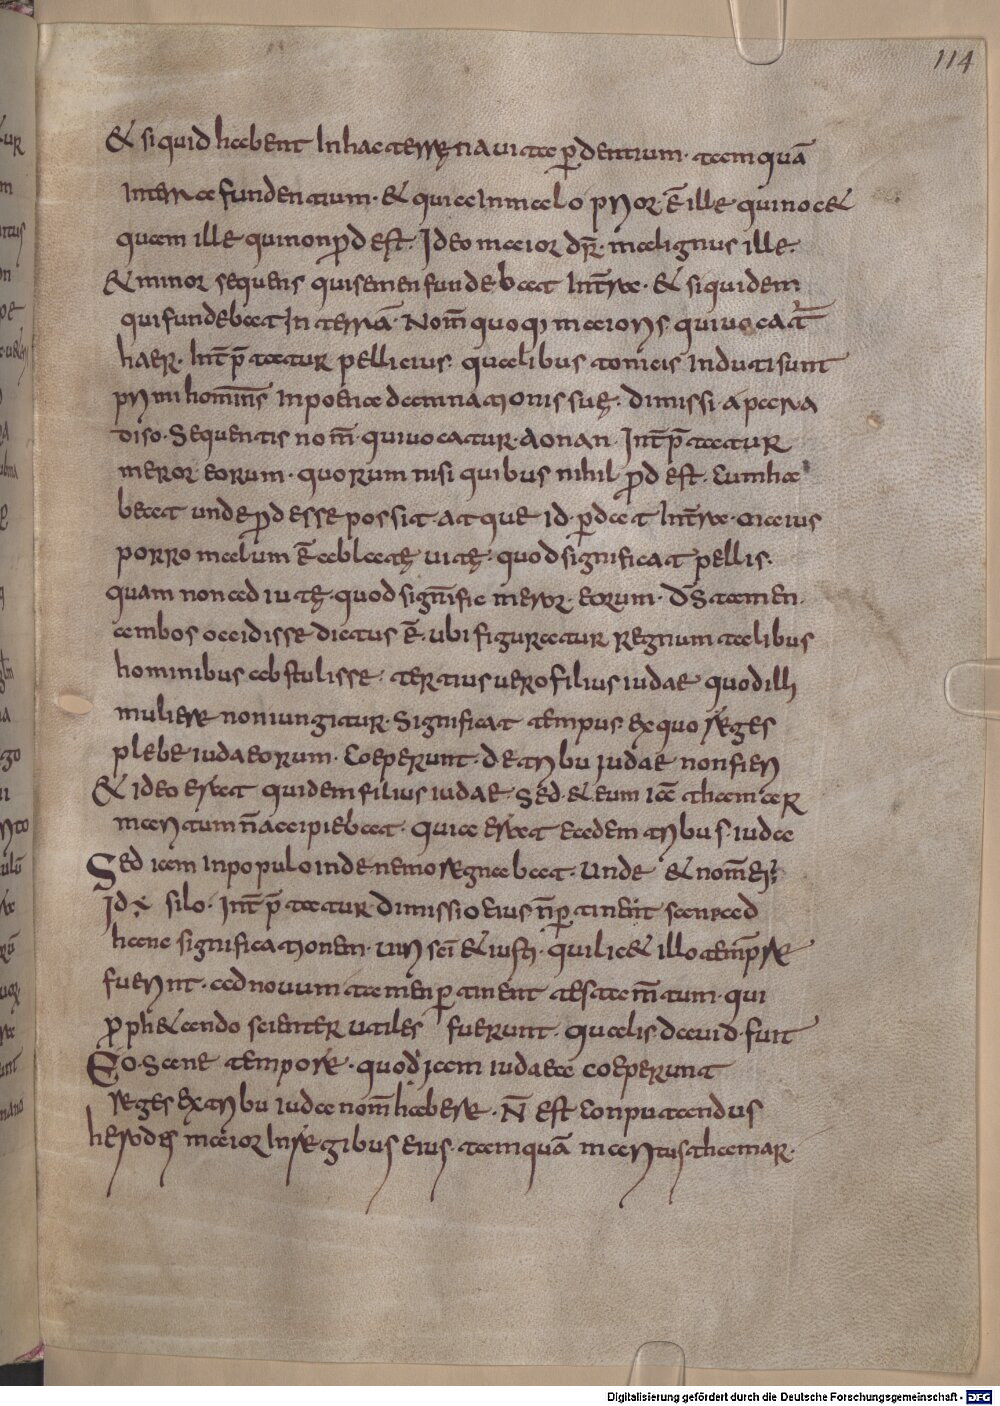 114
& siquid habent In hac terrę na uitae ꝑdentium· tamquā
Interra fundentium· & quia In malo prior· ē ille qui noc&
quam ille qui non ꝓdest· Ideo maior dr̄· malignus ille·
& minor sequens qui semen fundebat Int̄re· & siquidem
qui fundebat In terrā· Nom̄ quoq; maioris· qui uocat̄
haer· Int̄p̄tatur pellicius· qualibus tonicis Induti sunt
primi homin̄s In poena damnationis suę· dimissi· a para
diso· Sequentis nom̄· qui uocatur· Aonan Int̄p̄tatur
meror eorum· quorum nisi quibus nihil ꝓdest· Cum ha
beat unde ꝓdesse possit· atque id ꝑdat Int̄re· maius
porro malum ē ablatę uitę· quod significat pellis·
quam non adiutę· quod signific̄ meror· eorum· D̄s tamen·
ambos occidisse dictus ē· ubi figuratur regnum talibus
hominibus abstulisse· tertius uero filius iudae quod illi
muliere non iungitur· Significat tempus ex quo reges
plebe iudaeorum· Coeperunt· de tribu iudae non fieri
& ideo erat quidem filius iudae· Sed & eum iā thamar
maritum n̄ accipiebat· quia erat eadem tribus· iuda
Sed iam In populo inde nemo regnabat· Unde & nom̄ ei;
Id ÷ silo· Int̄p̄tatur dimissio eius n̄ ꝑtinent sane ad
hanc significationem· uiri sc̄i & iusti· qui lic& illo temp̄re
fuerint· ad nouum tamen ꝑtinent testam̄tum· qui
ꝓph&ando scienter utiles fuerunt· qualis dauid· fuit
Eo· Sane tempore· quod iam iudaea coeperunt
reges ex tribu iuda nom̄ habere· N̄ est conputandus
herodes maior In regibus eius· tamquā maritus thamar·
Digitalisierung gefördert durch die Deutsche Forschungsgemeinschaft - DFG